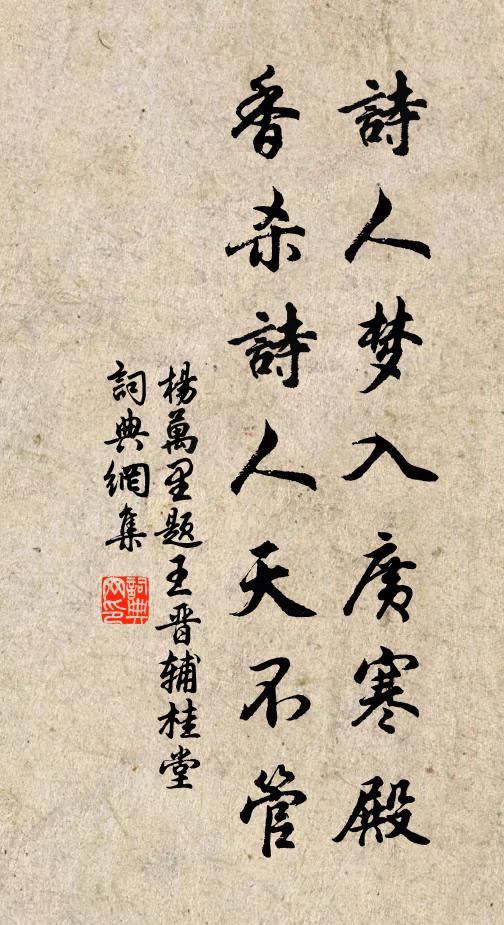 詩人梦入廣寒殿
香杀詩人天不管
楊萬里题王晋辅桂堂
詞典網集
詞典
网印